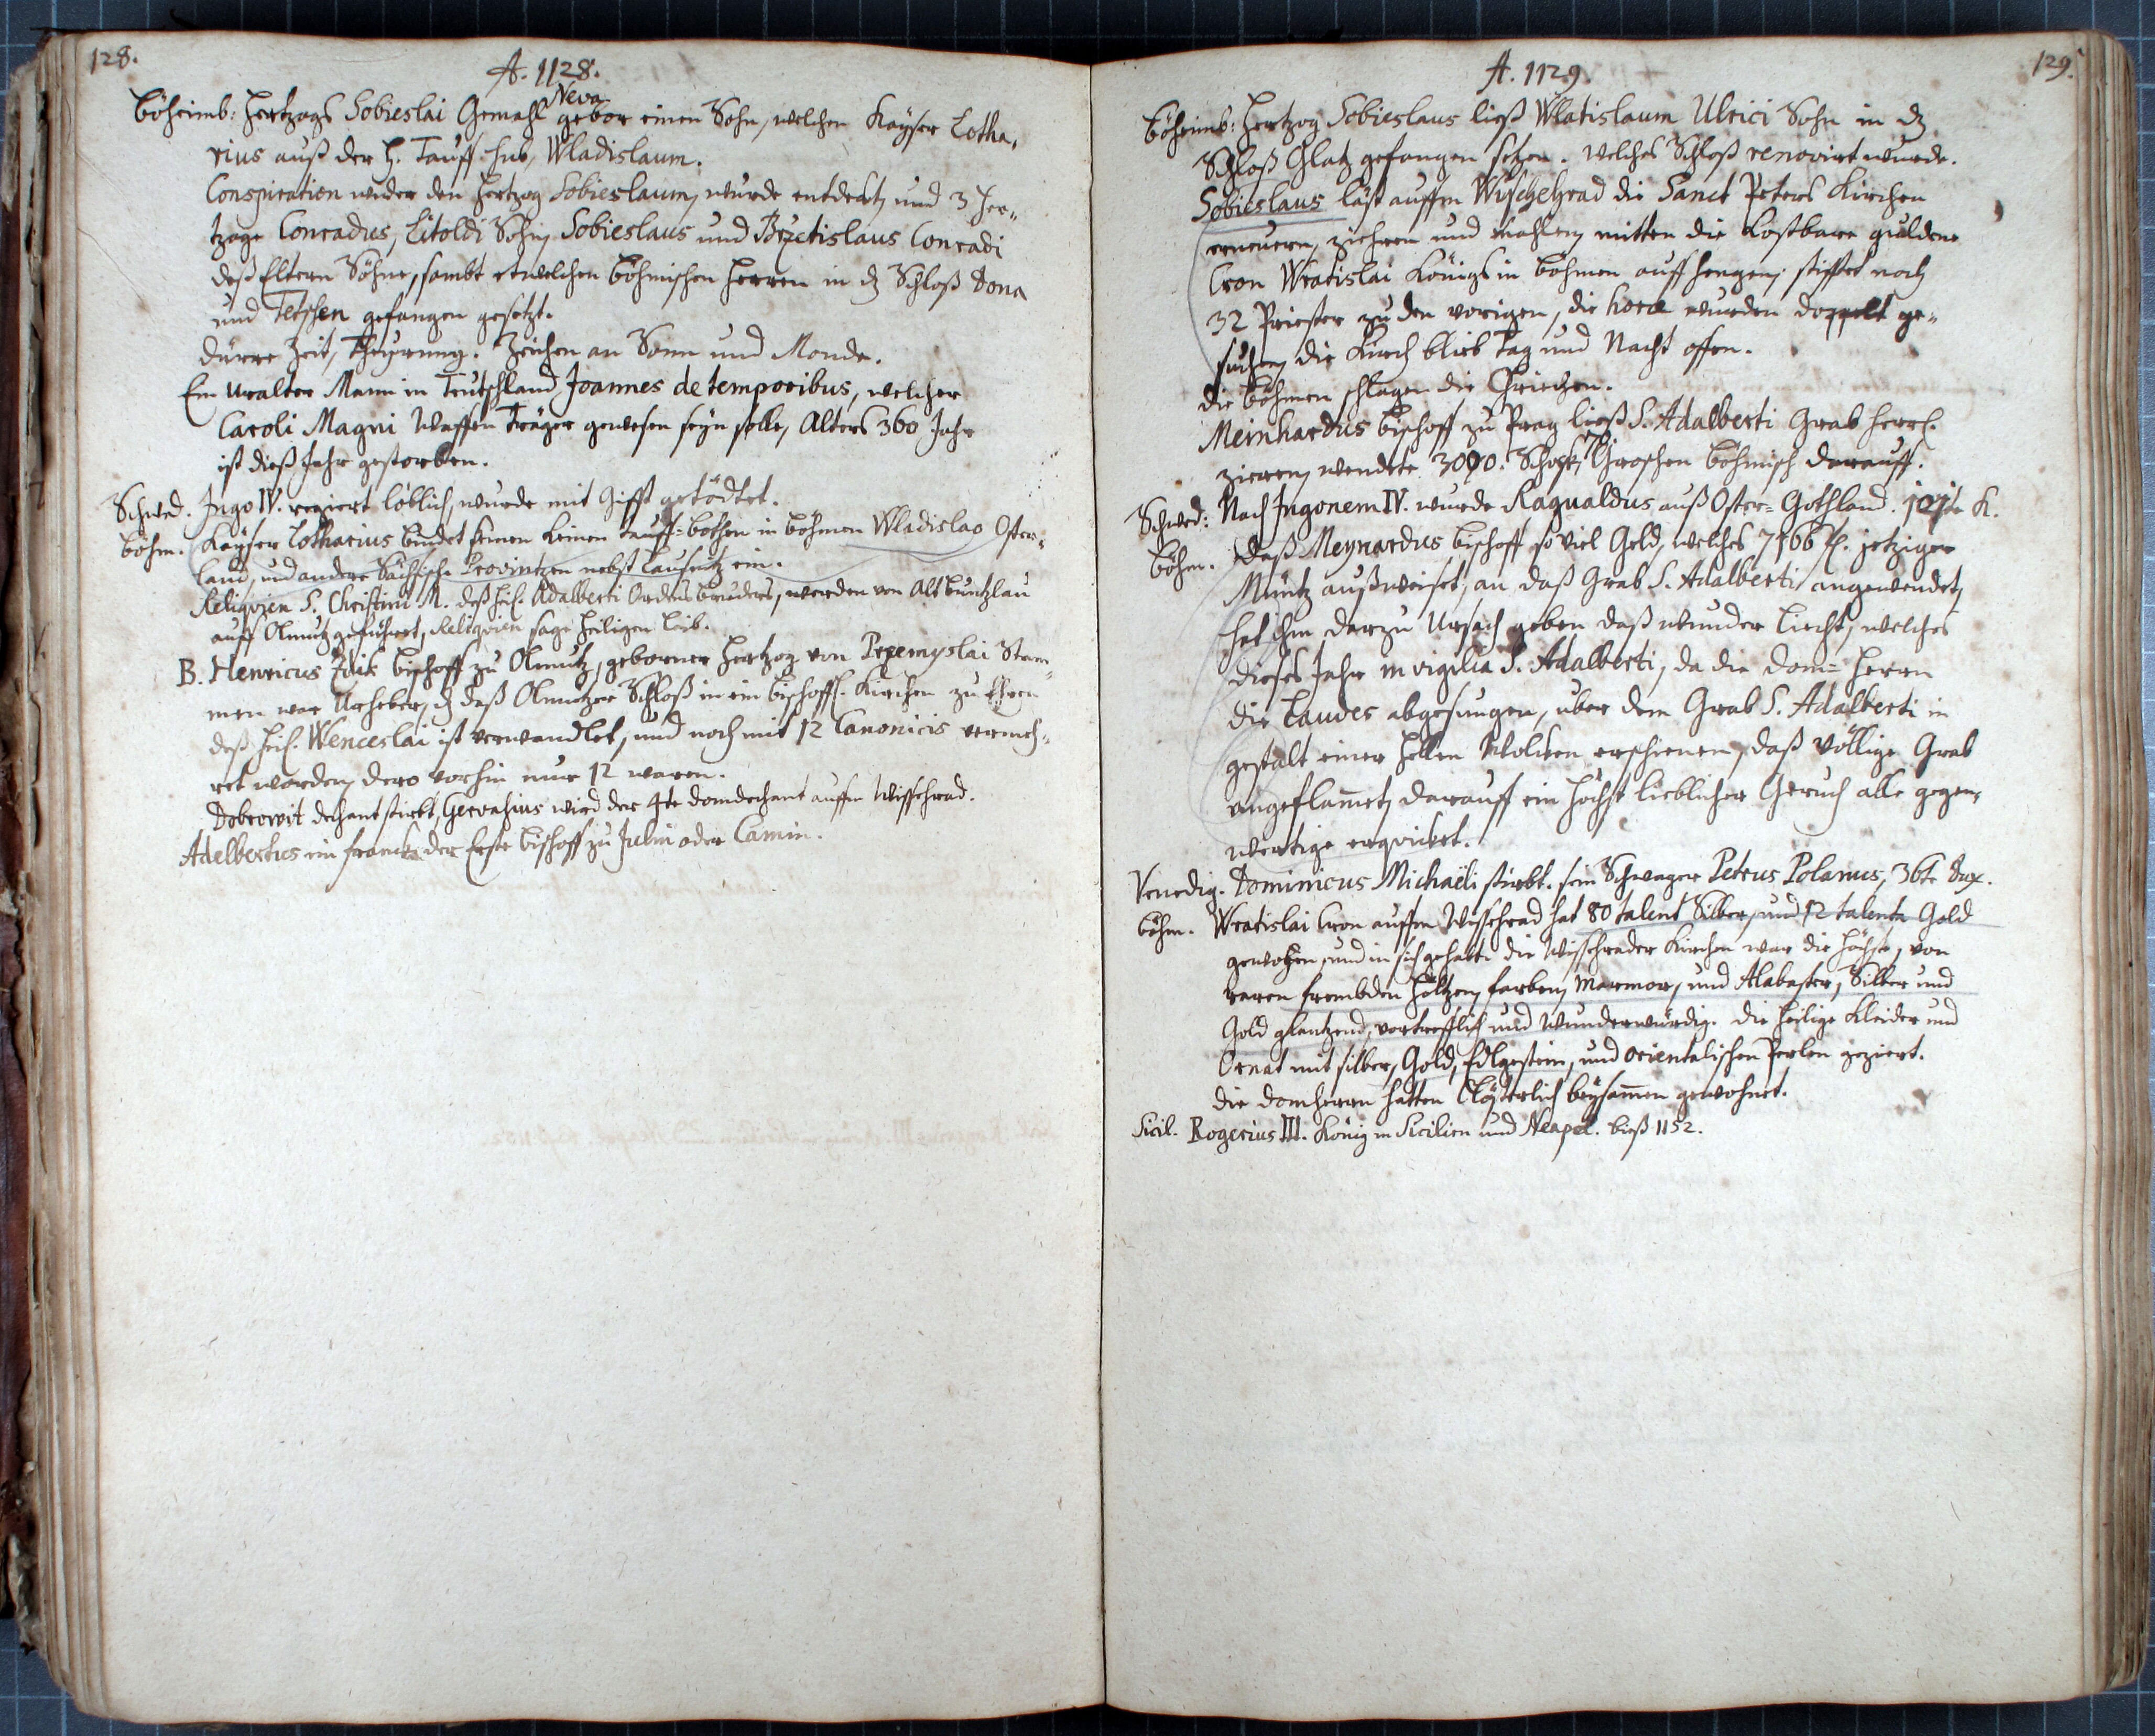 128.
A. 1128.
Neva
Böheimb: Hertzogs Sobieslai Gemahl gebor einen Sohn, welchen Kayser Lotha,
rius auß der H. Tauff hub, Wladislaum.
Conspiration wider den Hertzog Sobieslaum, wurde entdeckt, und 3 Her,,
tzoge Conradus, Litoldi Sohn, Sobieslaus und Brzetislaus Conradi
deß Eltern Söhne, sambt etwelchen Böhmischen Herren in dz Schloß Dona
und Tetschen gefangen gesetzt.
Dürre Zeit, Theyrung. Zeichen an Sonn und Monde.
Ein uralter Mann in Teutschland, Joannes de temporibus, welcher
Caroli Magni Waffen Träger gewesen seyn solle, Alters 360 Jahr
ist dieß Jahr gestorben.
Schwed. Ingo IV. regiert löblich, wurde mit Gifft getödtet.
Böhm. Kayser Lotharius bindet seinen kleinen Tauff-Bothen in Böhmen Wladislao Oster,,
land, und andere Sächsische Provintzen nebst Lausnitz ein.
Reliqvien S. Christini M. deß heil. Adalberti Ordens bruders, werden von Alt Buntzlau
auff Olmutz geführet, Reliqvien sage heiligen Leib.
B. Henricus Zdik Bischoff zu Olmutz, geborner Hertzog von Przemyslai Stam,,
men war Urheber, dz daß Olmutzer Schloß in ein Bischoffl. Kirchen zu Ehren
deß heil. Wenceslai ist verwandlet, und noch mit 12 Canonicis vermeh,,
ret worden, dero vorhin nur 12 waren.
Dobrowit Dechant stirbt, Gervasius wird der 4te Domdechant auffm Wissehrad.
Adelbertus ein Francke der Erste Bischoff zu Julin oder Camin.
129.
A. 1129.
Böheimb: Hertzog Sobieslaus ließ Wlatislaum Ulrici Sohn in dz
Schloß Glatz gefangen setzen. Welches Schloß renovirt wurde.
Sobieslaus läst auffm Wischehrad die Sanct Peters Kirchen
erneuern, ziehren und mahlen, mitten die Kostbare guldene
Cron Wratislai Königs in Böhmen auffhengen, stifftet noch
32 Priester zu den vorigen, die horæ wurden doppelt ge,,
sungen, die Kirch blieb Tag und Nacht offen.
Die Böhmen schlagen die Griechen.
Meinhardus Bischoff zu Prag ließ S. Adalberti Grab herrl.
zieren, wendete 3000. Schock Groschen Böhmisch darauff.
Schwed: Nach Ingonem IV. wurde Ragualdus auß Oster-Gothland. 101te K.
Böhm. Daß Meynardus Bischoff so viel Geld, welches 7566 fl. jetziger
Müntz außweiset, an daß Grab S. Adalberti angewendet,
hat ihm darzu Ursach geben daß wunder Liecht, welches
dieses Jahr in vigilia S. Adalberti, da die Dom-Herrn
die Laudes abgesungen, uber dem Grab S. Adalberti in
gestalt einer hellen Wolcken erschienen, daß völlige Grab
angeflamet, darauff ein höchst lieblicher Geruch alle gegen,
wertige erqvicket.
Venedig. Dominicus Michaëli stirbt. sein Schwager Petrus Polanus, 36te Dux.
Böhm. Wratislai Cron auffm Wissehrad hat 80 talent Silber, und 12 talenta Gold
gewogen, und in sich gehabt. die Wissehrader Kirchen war die höchste, von
raren frembden Höltzen, farben, Marmor, und Alabaster, Silber und
Gold glantzend, vortrefflich und Wunderwürdig. die heilige Kleider und
Ornat mit silber, Gold, Edlgestein, und orientalischen Perlen geziert.
die Domherrn hatten Clösterlich beysamen gewohnet.
Sicil. Rogerius III. König in Sicilien und Neapel. bieß 1152.